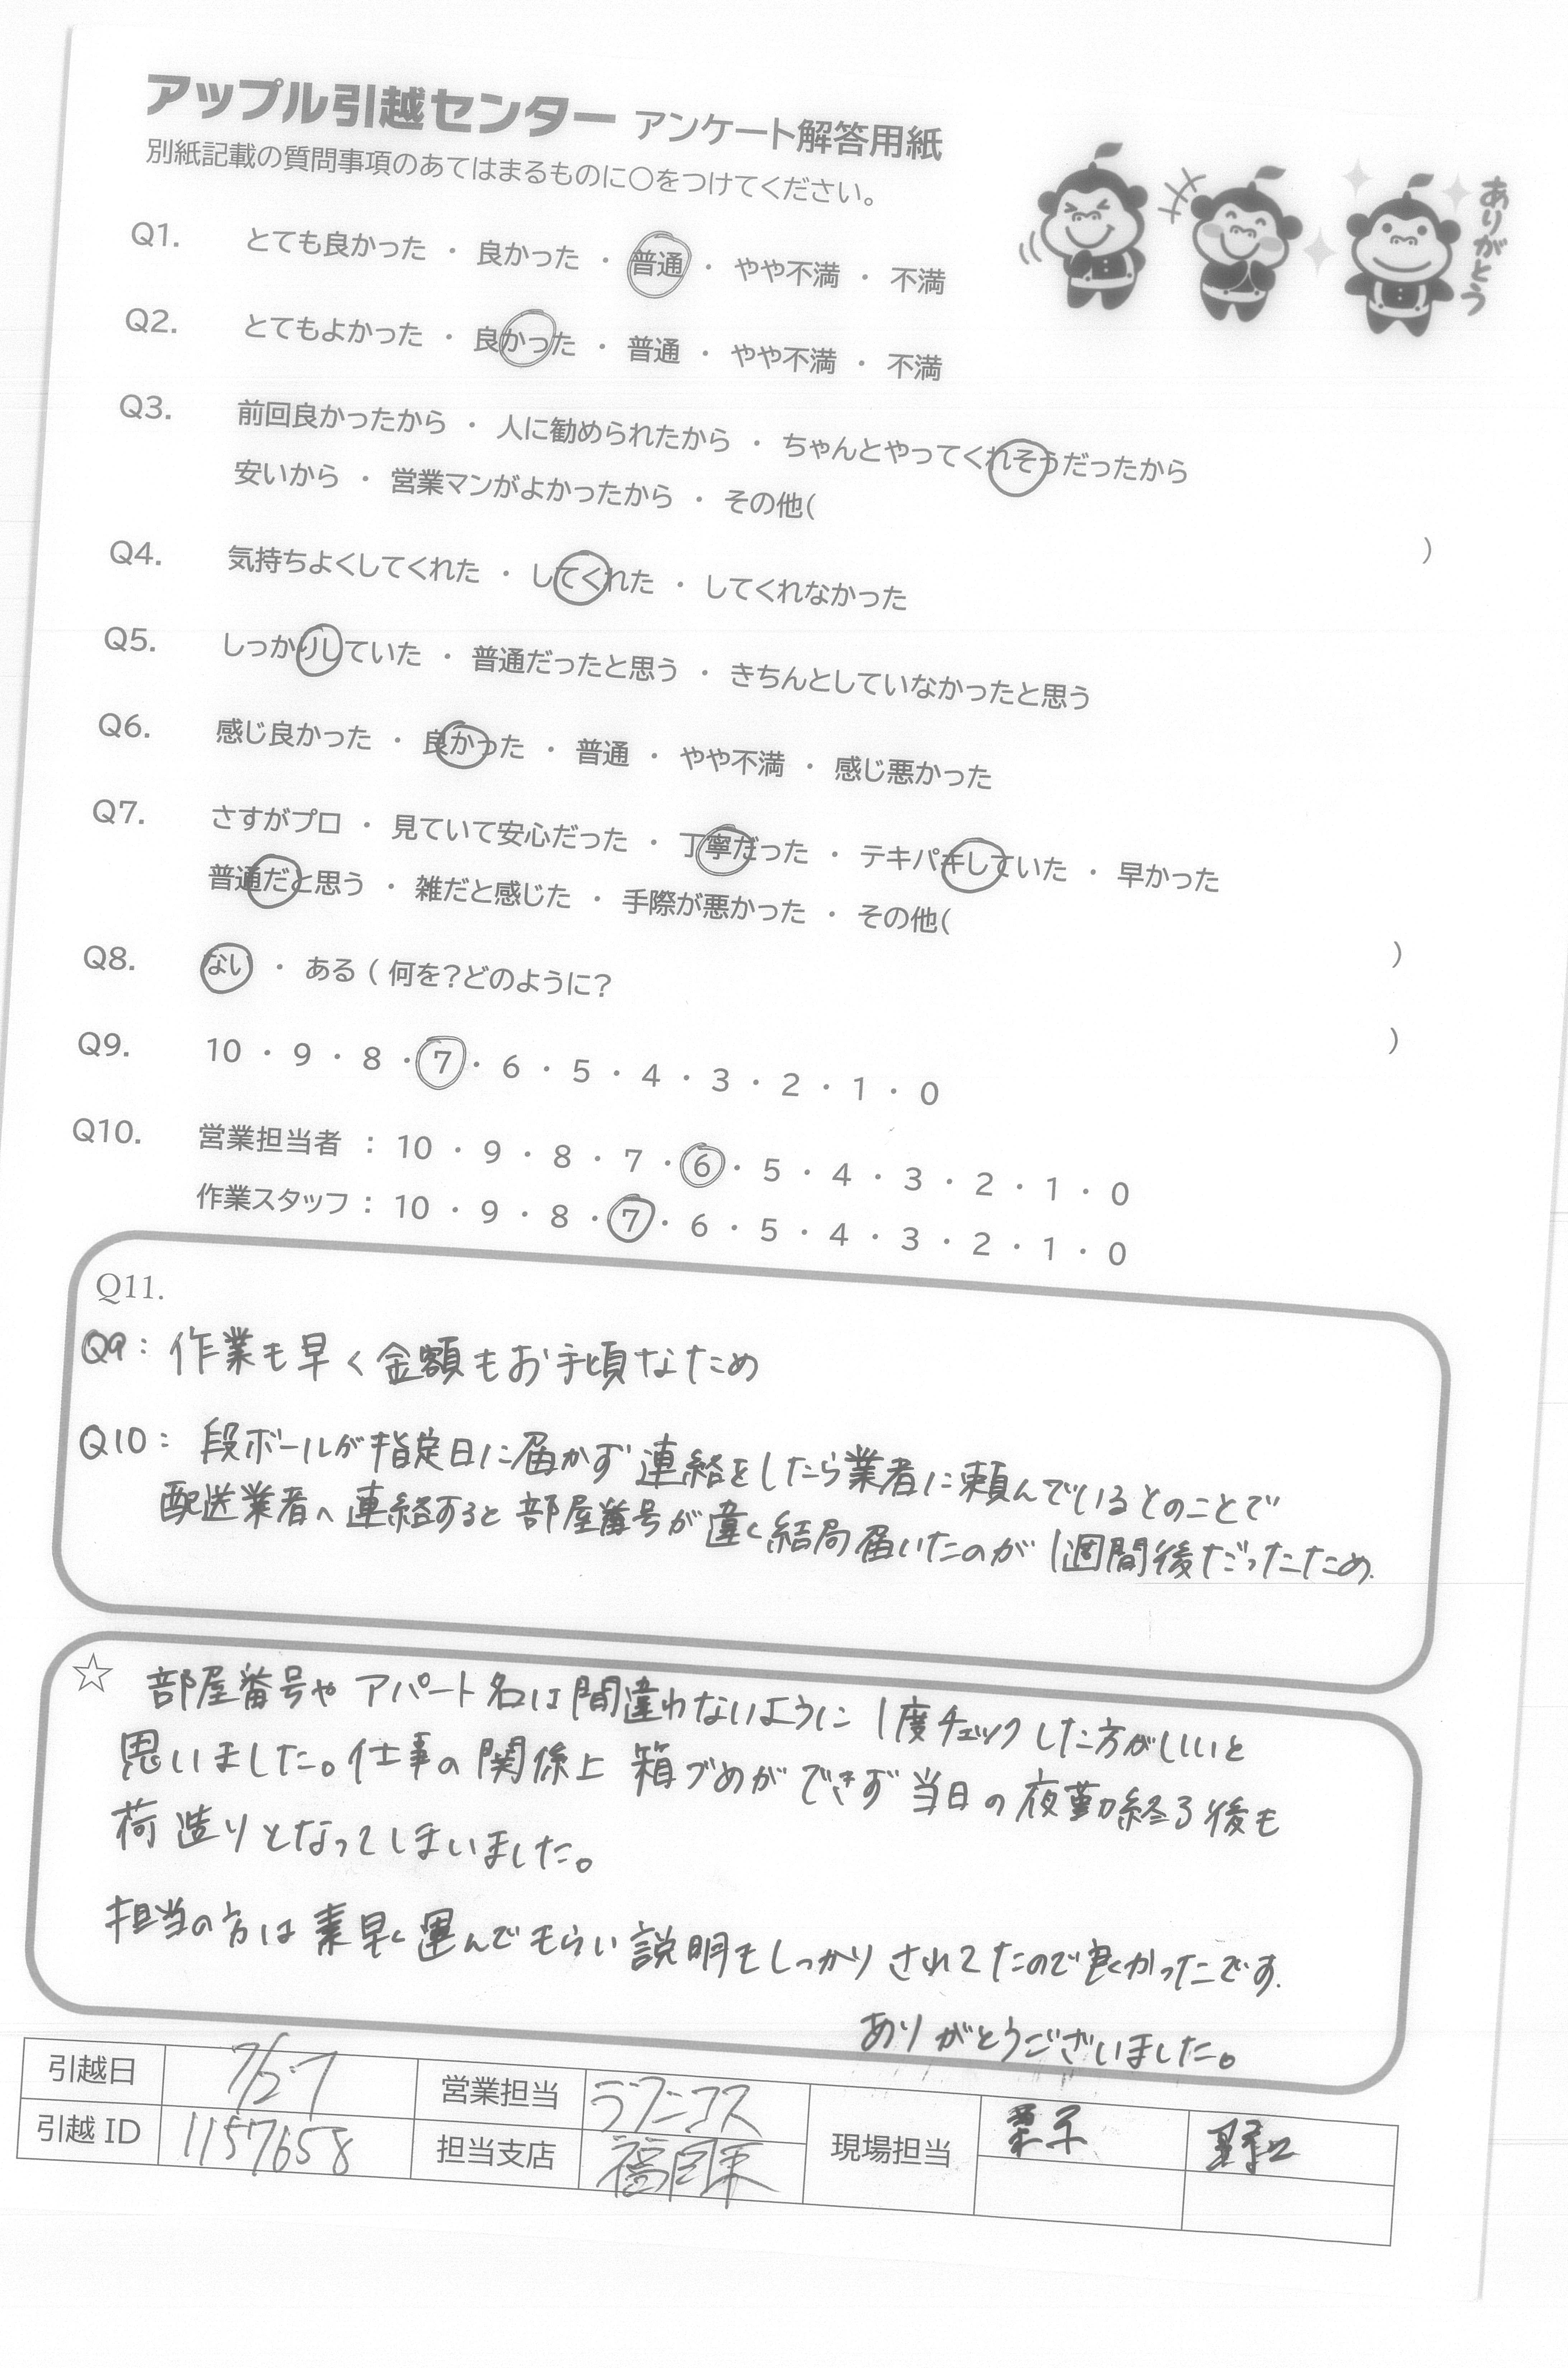 アップル引越センター アンケート解答用紙
別紙記載の質問事項のあてはまるものに○をつけてください。
ありがとう
Q1. とても良かった ・ 良かった ・ 普通 ・ やや不満 ・ 不満
Q2. とてもよかった ・ 良かった ・ 普通 ・ やや不満 ・ 不満
Q3. 前回良かったから ・ 人に勧められたから ・ ちゃんとやってくれそうだったから
安いから ・ 営業マンがよかったから ・ その他( )
Q4. 気持ちよくしてくれた ・ してくれた ・ してくれなかった
Q5. しっかりしていた ・ 普通だったと思う ・ きちんとしていなかったと思う
Q6. 感じ良かった ・ 良かった ・ 普通 ・ やや不満 ・ 感じ悪かった
Q7. さすがプロ ・ 見ていて安心だった ・ 丁寧だった ・ テキパキしていた ・ 早かった
普通だと思う ・ 雑だと感じた ・ 手際が悪かった ・ その他( )
Q8. ない ・ ある ( 何を?どのように? )
Q9. 10 ・ 9 ・ 8 ・ 7 ・ 6 ・ 5 ・ 4 ・ 3 ・ 2 ・ 1 ・ 0
Q10. 営業担当者 : 10 ・ 9 ・ 8 ・ 7 ・ 6 ・ 5 ・ 4 ・ 3 ・ 2 ・ 1 ・ 0
作業スタッフ : 10 ・ 9 ・ 8 ・ 7 ・ 6 ・ 5 ・ 4 ・ 3 ・ 2 ・ 1 ・ 0
Q11.
Q9: 作業も早く金額もお手頃なため
Q10: 段ボールが指定日に届かず連絡をしたら業者に頼んでいるとのことで
配送業者へ連絡すると部屋番号が違く結局届いたのが1週間後だったため.
☆ 部屋番号やアパート名は間違わないように1度チェックした方がしいいと
思いました。仕事の関係上 箱づめができず当日の夜勤終る後も
荷造りとなってしまいました。
担当の方は素早く運んでもらい説明もしっかりされてたので良かったです.
ありがとうございました。
引越日 7/27 営業担当 現場担当 栗子 野口
引越 ID 1157658 担当支店 福岡東